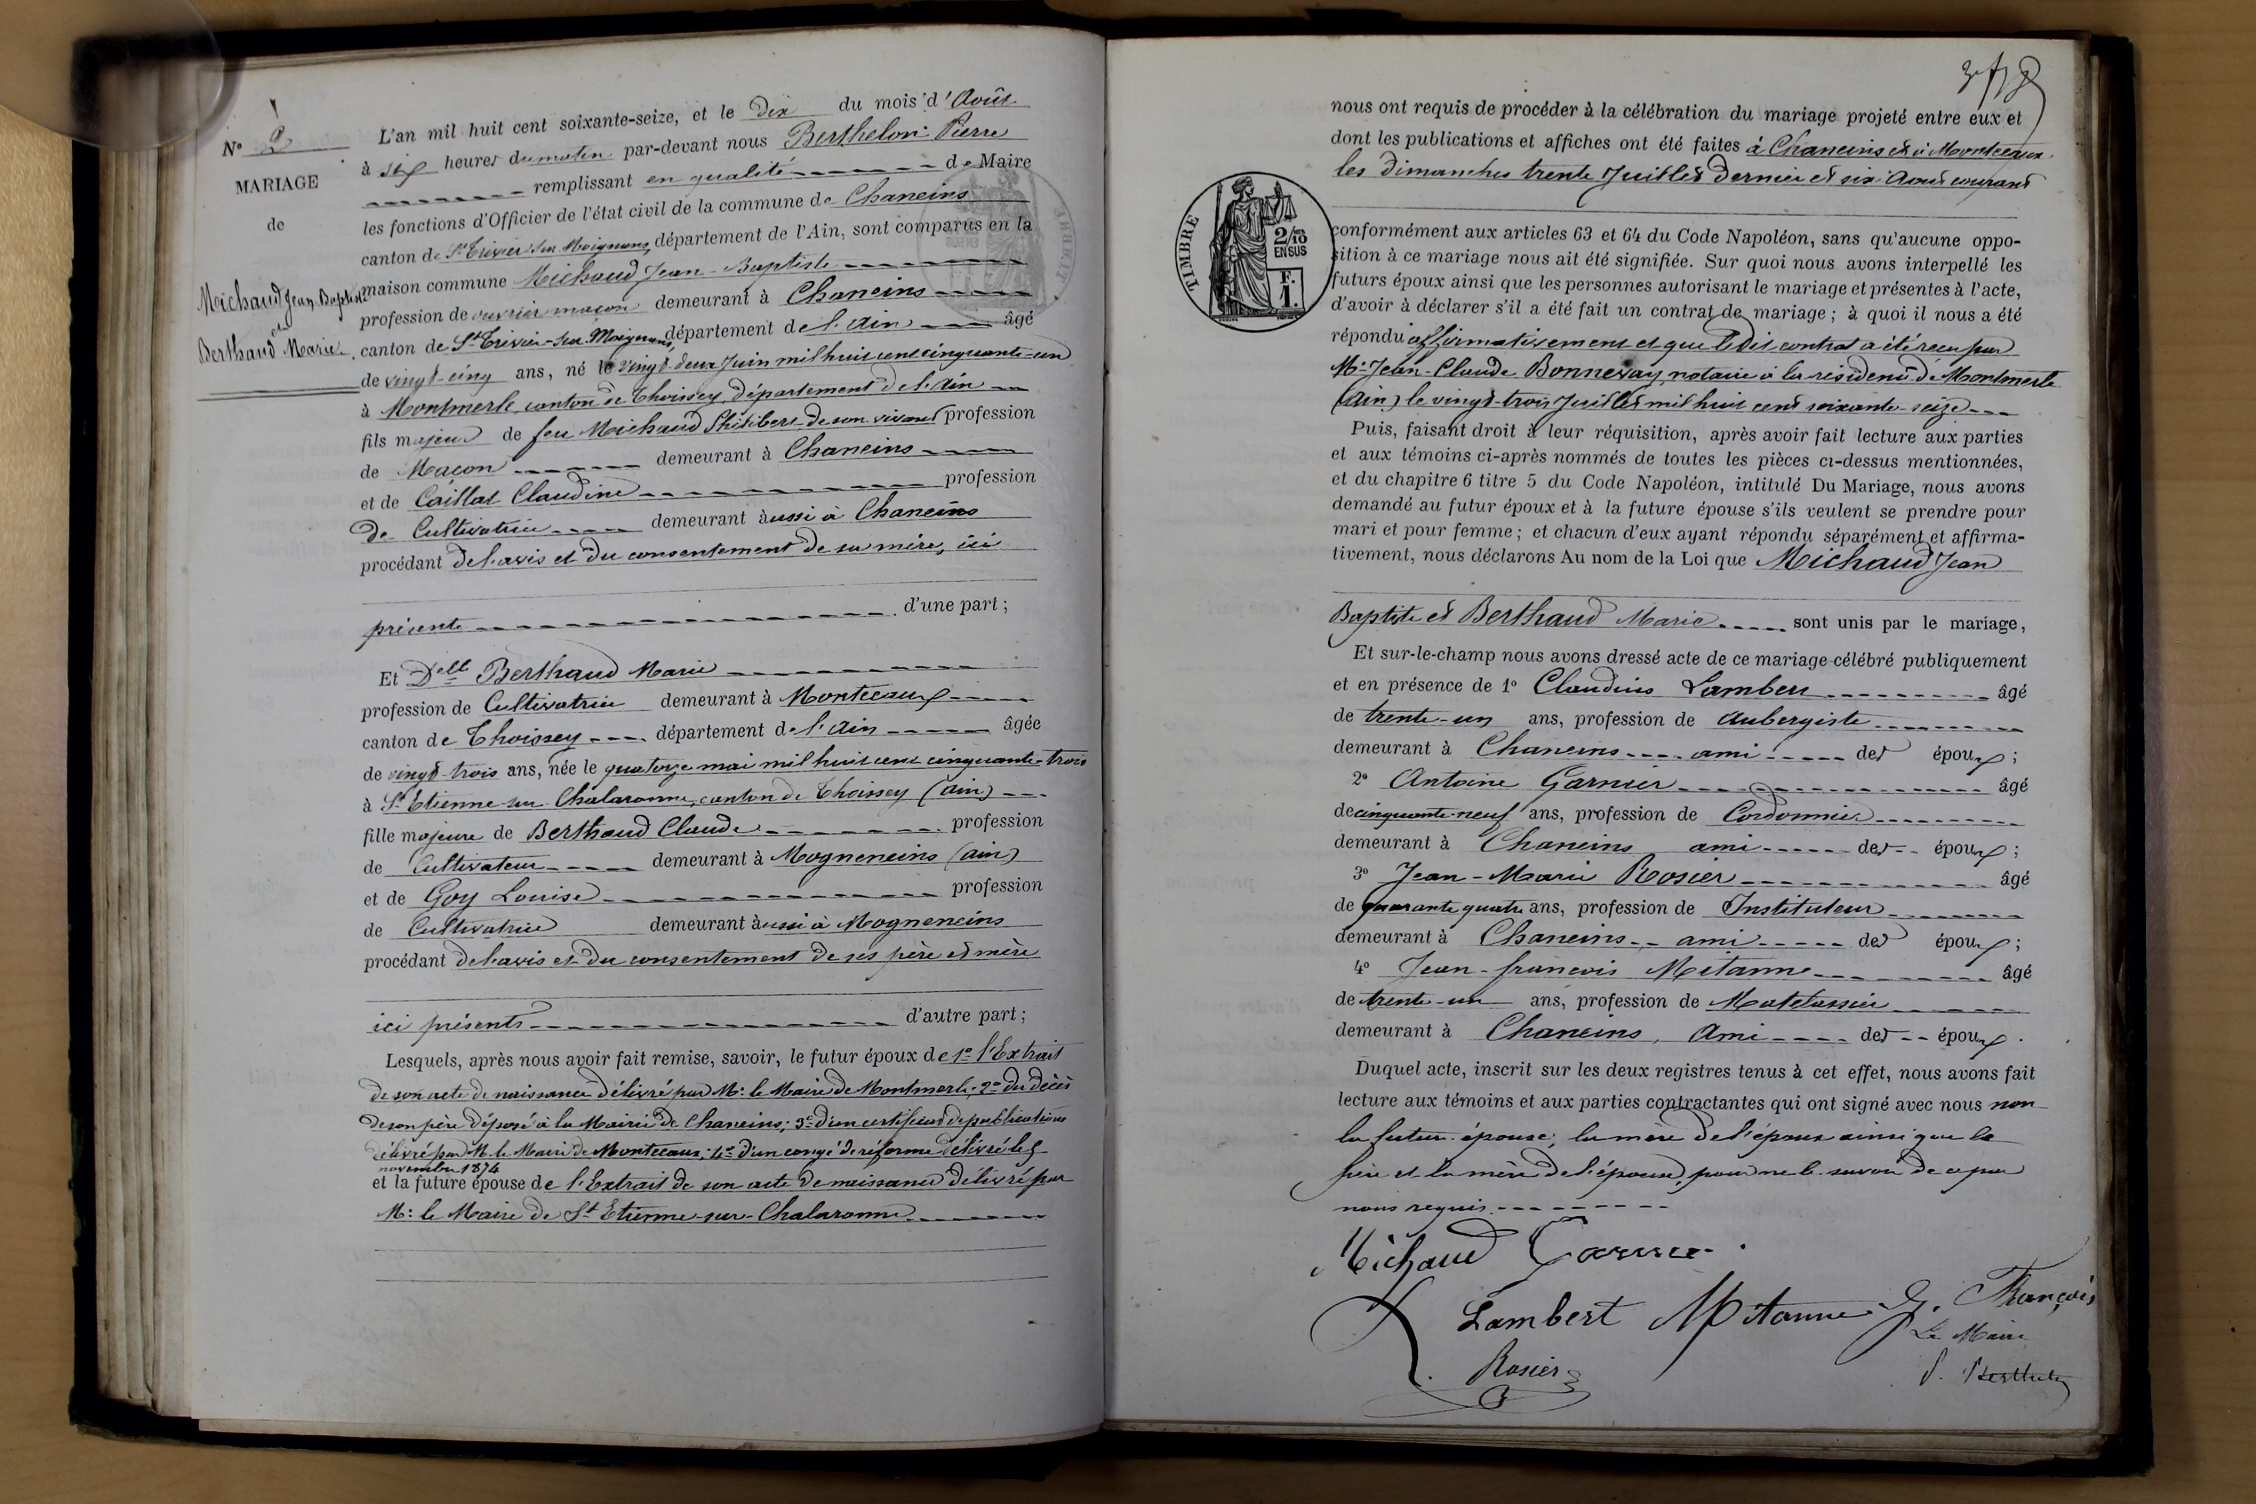 N° 2
MARIAGE
de
Michaud Jean, Baptiste
et
Berthaud Marie.
L'an mil huit cent soixante-seize, et le Dix du mois d'Août
à six heures du matin par-devant nous Berthelon Pierre
remplissant en qualité de Maire
les fonctions d'Officier de l'état civil de la commune de Chaneins
canton de St Trivier sur Moignans, département de l'Ain, sont comparus en la
maison commune Michaud Jean-Baptiste
profession de ouvrier maçon demeurant à Chaneins
canton de St Trivier-sur Moignans, département de l'Ain âgé
de vingt-cinq ans, né le vingt-deux Juin mil huit cent cinquante-un
à Montmerle, canton de Thoissey, département de l'Ain
fils majeur de feu Michaud Philibert de son vivant profession
de Maçon demeurant à Chaneins
et de Caillat Claudine profession
de Cultivatrice demeurant aussi à Chaneins
procédant de l'avis et du consentement de sa mère, ici
présente d'une part;
Et Delle Berthaud Marie
profession de Cultivatrice demeurant à Montceaux
canton de Thoissey département de l'Ain âgée
de vingt-trois ans, née le quatorze mai mil huit cent cinquante-trois
à St Etienne-sur-Chalaronne, canton de Thoissey (Ain)
fille majeure de Berthaud Claude profession
de Cultivateur demeurant à Mogneneins (Ain)
et de Goy Louise profession
de Cultivatrice demeurant aussi à Mogneneins
procédant de l'avis et du consentement de ses père et mère
ici présents d'autre part;
Lesquels, après nous avoir fait remise, savoir, le futur époux de 1° l'Extrait
de son acte de naissance délivré par Mr le Maire de Montmerle; 2° du décès
de son père déposé à la Mairie de Chaneins; 3° d'un certificat de publications
délivré par Mr le Maire de Montceaux; 4° d'un congé de réforme délivré le 5
novembre 1874
et la future épouse de l'Extrait de son acte de naissance délivré par
Mr le Maire de St Etienne-sur-Chalaronne
nous ont requis de procéder à la célébration du mariage projeté entre eux et
dont les publications et affiches ont été faites à Chaneins et à Montceaux
les Dimanches trente Juillet dernier et six Août courant
TIMBRE
2/10
EN SUS
F.
1.
conformément aux articles 63 et 64 du Code Napoléon, sans qu'aucune oppo-
sition à ce mariage nous ait été signifiée. Sur quoi nous avons interpellé les
futurs époux ainsi que les personnes autorisant le mariage et présentes à l'acte,
d'avoir à déclarer s'il a été fait un contrat de mariage; à quoi il nous a été
répondu affirmativement et que le dit contrat a été reçu par
Mr Jean-Claude Bonnevay, notaire à la résidence de Montmerle
(Ain) le vingt-trois Juillet mil huit cent soixante-seize
Puis, faisant droit à leur réquisition, après avoir fait lecture aux parties
et aux témoins ci-après nommés de toutes les pièces ci-dessus mentionnées,
et du chapitre 6 titre 5 du Code Napoléon, intitulé Du Mariage, nous avons
demandé au futur époux et à la future épouse s'ils veulent se prendre pour
mari et pour femme; et chacun d'eux ayant répondu séparément et affirma-
tivement, nous déclarons Au nom de la Loi que Michaud Jean
Baptiste et Berthaud Marie sont unis par le mariage,
Et sur-le-champ nous avons dressé acte de ce mariage célébré publiquement
et en présence de 1° Claudius Lambert âgé
de trente-un ans, profession de Aubergiste
demeurant à Chaneins ami des époux;
2° Antoine Garnier âgé
de cinquante-neuf ans, profession de Cordonnier
demeurant à Chaneins ami des époux;
3° Jean-Marie Rosier âgé
de quarante quatre ans, profession de Instituteur
demeurant à Chaneins ami des époux;
4° Jean-françois Mitanne âgé
de trente-un ans, profession de Matelassier
demeurant à Chaneins, Ami des époux.
Duquel acte, inscrit sur les deux registres tenus à cet effet, nous avons fait
lecture aux témoins et aux parties contractantes qui ont signé avec nous non
la future épouse, la mère de l'époux ainsi que le
père et la mère de l'épouse, pour ne le savoir de ce par
nous requis
Michaud Garnier
Lambert Mitanne J. François
Le Maire
Rosier P. Berthelon